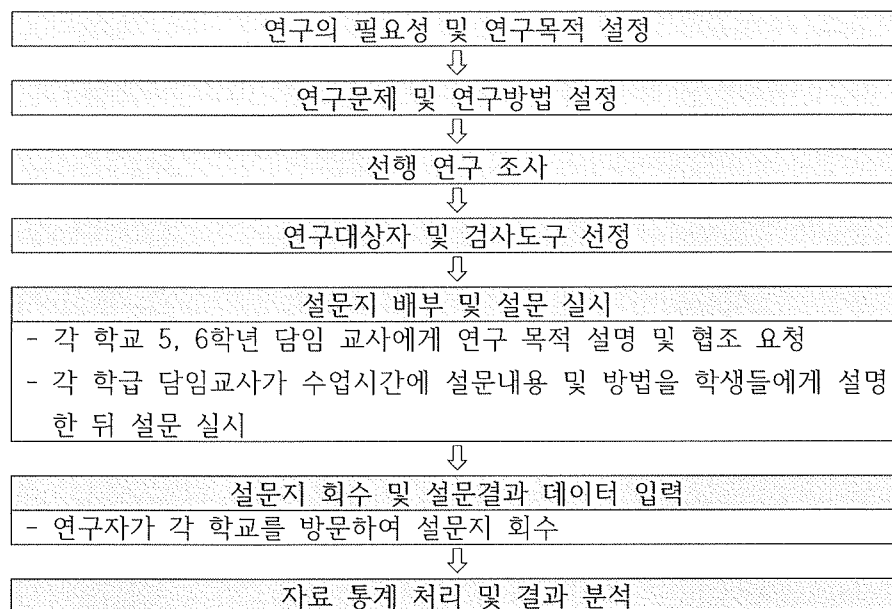 연구의 필요성 및 연구목적 설정
⇩
연구문제 및 연구방법 설정
⇩
선행 연구 조사
⇩
연구대상자 및 검사도구 선정
⇩
설문지 배부 및 설문 실시
- 각 학교 5, 6학년 담임 교사에게 연구 목적 설명 및 협조 요청
- 각 학급 담임교사가 수업시간에 설문내용 및 방법을 학생들에게 설명
한 뒤 설문 실시
⇩
설문지 회수 및 설문결과 데이터 입력
- 연구자가 각 학교를 방문하여 설문지 회수
⇩
자료 통계 처리 및 결과 분석